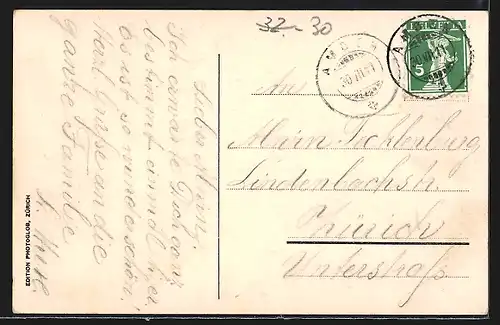 32 - 30
HELVETIA
5
AMDEN
30.VII.11
AMDEN
30.VII.11
An
Lindenbachstr.
Zürich
Unterstraß
Ich erwarte Dich ganz
bestimmt einmal hier
es ist so wunderschön!
Herzl. Grüße an die
ganze Familie
EDITION PHOTOGLOB, ZÜRICH